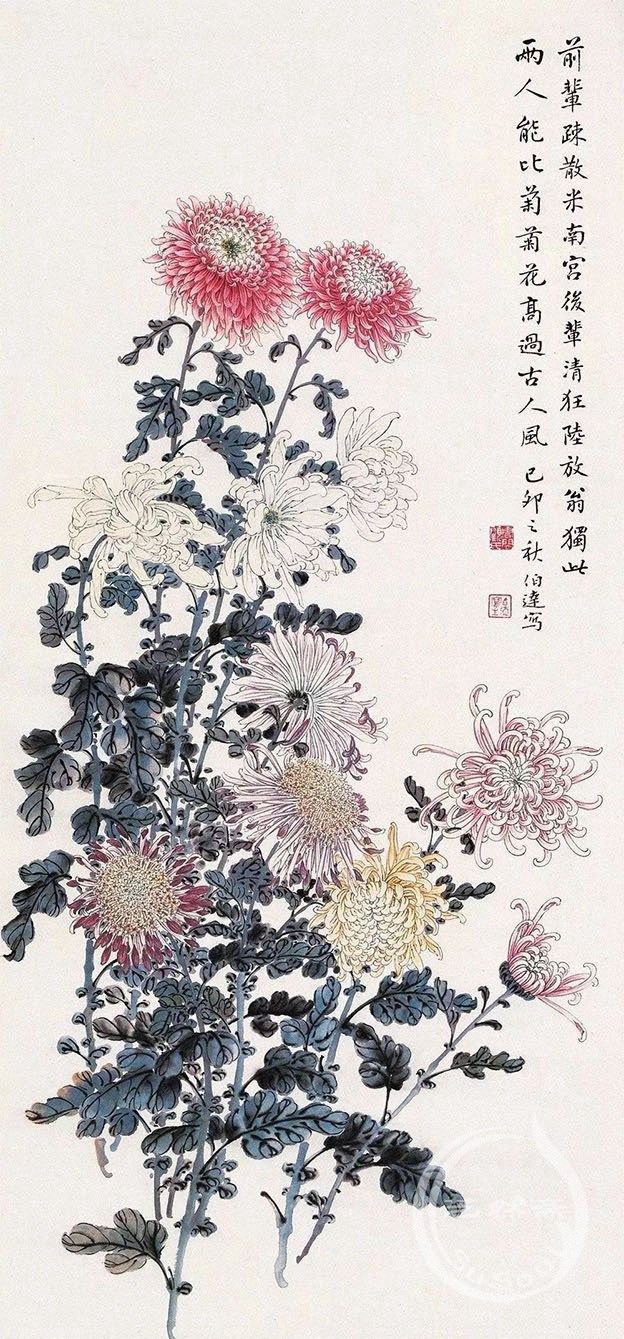 前輩疎散米南宮後輩清狂陸放翁獨此
兩人能比菊菊花高過古人風 己卯之秋伯達写